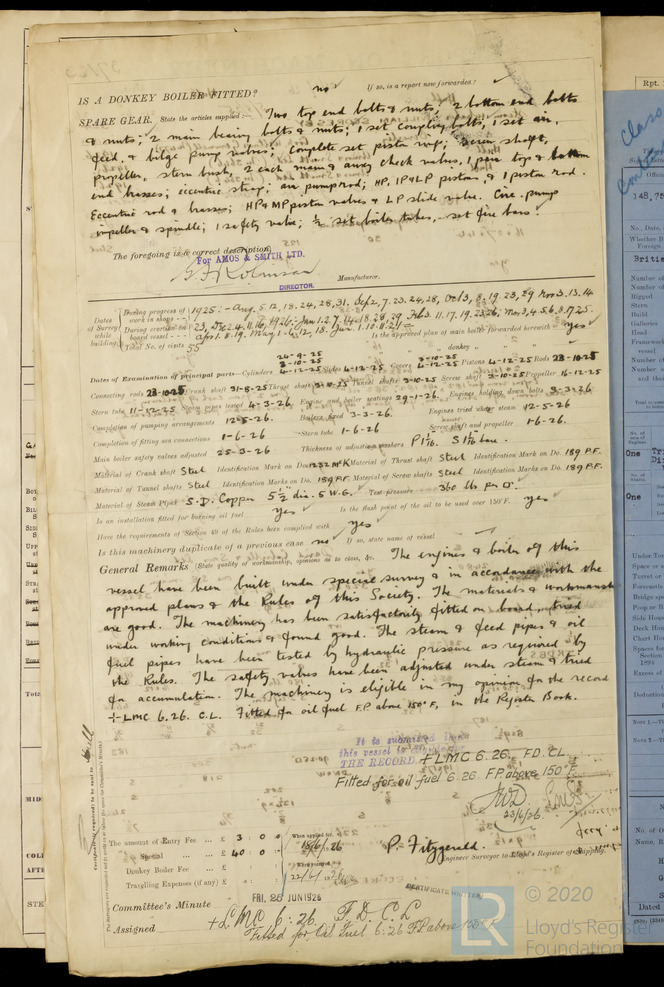 IS A DONKEY BOILER FITTED? no If so, is a report now forwarded?
SPARE GEAR. State the articles supplied:— Two top end bolts & nuts; 2 bottom end bolts
& nuts; 2 main bearing bolts & nuts; 1 set coupling bolts; 1 set air,
feed, & bilge pump valves; complete set piston rings; screw shaft,
propeller, stern bush, 2 each main & auxy check valves, 1 pair top & bottom
end brasses; eccentric strap; air pump rod; HP, IP & LP pistons, & 1 piston rod.
Eccentric rod & brasses; HP & MP piston valves & LP slide valve. Circ. pump
impeller & spindle; 1 safety valve; ½ set boiler tubes, set fire bars.
The foregoing is a correct description,
For AMOS & SMITH LTD.
Manufacturer.
DIRECTOR.
Dates of Survey while building
During progress of work in shops - - 1925:- Aug. 5. 12. 18. 24. 28. 31. Sep. 2. 7. 23. 24. 28, Oct 3, 8. 19. 23. 29 Nov 3. 13. 14
During erection on board vessel - - - 23, Dec 2. 4. 11. 16, 1926:- Jan 1. 2. 7. 28. 29. Feb 3. 11. 17. 19. 23. 26; Mar 3, 4. 5. 6. 8. 17. 25.
Apr 1. 8. 19. May 1. 6. 12. 18. Jun 1. 10. 8. 21
Total No. of visits 55 Is the approved plan of main boiler forwarded herewith yes
" " " donkey " " "
Dates of Examination of principal parts—Cylinders 24-9-25 8-10-25 4-12-25 Slides 4-12-25 Covers 8-10-25 4-12-25 Pistons 4-12-25 Rods 28-10-25
Connecting rods 28-10-25 Crank shaft 31-8-25 Thrust shaft 3-10-25 Tunnel shafts 3-10-25 Screw shaft 3-10-25 Propeller 16-12-25
Stern tube 11-12-25 Steam pipes tested 4-3-26 Engine and boiler seatings 29-1-26 Engines holding down bolts 3-3-26
Completion of pumping arrangements 12-5-26 Boilers fixed 3-3-26 Engines tried under steam 12-5-26
Completion of fitting sea connections 1-6-26 Stern tube 1-6-26 Screw shaft and propeller 1-6-26.
Main boiler safety valves adjusted 25-3-26 Thickness of adjusting washers
Material of Crank shaft Steel Identification Mark on Do. Material of Thrust shaft Steel Identification Mark on Do. 189 P.F.
Material of Tunnel shafts Steel Identification Marks on Do. 189 P.F. Material of Screw shafts Steel Identification Marks on Do. 189 P.F.
Material of Steam Pipes S. D. Copper 5½" dia. 5 W.G. Test pressure 360 lbs per □".
Is an installation fitted for burning oil fuel yes Is the flash point of the oil to be used over 150°F. yes
Have the requirements of Section 49 of the Rules been complied with yes
Is this machinery duplicate of a previous case no If so, state name of vessel
General Remarks (State quality of workmanship, opinions as to class, &c. The engines & boiler of this
vessel have been built under special survey & in accordance with the
approved plans & the Rules of this Society. The materials & workmansh
are good. The machinery has been satisfactorily fitted on board, tried
under working conditions & found good. The steam & feed pipes & oil
fuel pipes have been tested by hydraulic pressure as required by
the Rules. The safety valves have been adjusted under steam & tried
for accumulation. The machinery is eligible in my opinion for the record
+LMC 6.26. C.L. Fitted for oil fuel F.P. above 150°F, in the Register Book.
It is submitted that
this vessel is
THE RECORD +LMC 6.26. F.D. CL.
Fitted for oil fuel 6.26. F.P. above 150°F.
23/6/26.
The amount of Entry Fee ... £ 3 : 0 : 0 When applied for,
Special ... £ 40 : 0 : 0 15/6/1926
Donkey Boiler Fee ... £ When received,
Travelling Expenses (if any) £ 22/6/1926
P. Fitzgerald.
Engineer Surveyor to Lloyd's Register of Shipping.
Committee's Minute FRI. 25 JUN 1926
CERTIFICATE WRITTEN
Assigned +LMC 6.26 F.D. C.L
Fitted for Oil Fuel 6.26 F.P. above 150°F.
© 2020
LR Lloyd's Register
Foundation
Rpt.
Class
148,75
One
One